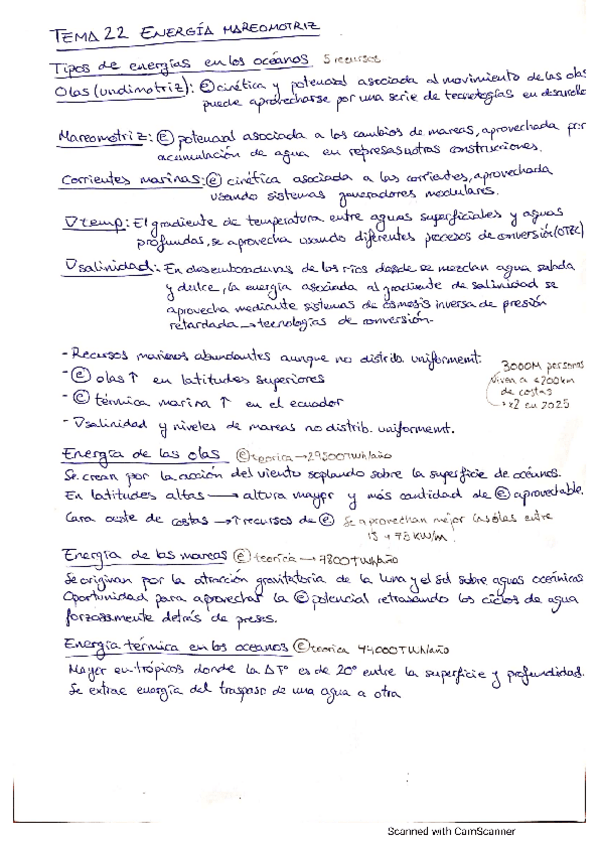 TEMA 22 ENERGÍA MAREOMOTRIZ
Tipos de energías en los océanos 5 recursos
Olas (undimotriz): ⓔ cinética y potencial asociada al movimiento de las olas
puede aprovecharse por una serie de tecnologías en desarrollo
Mareomotriz: ⓔ potencial asociada a los cambios de mareas, aprovechada por
acumulación de agua en represas u otras construcciones.
Corrientes marinas: ⓔ cinética asociada a las corrientes, aprovechada
usando sistemas generadores modulares.
∇temp: El gradiente de temperatura entre aguas superficiales y aguas
profundas, se aprovecha usando diferentes procesos de conversión (OTEC)
∇salinidad: En desembocaduras de los ríos donde se mezclan agua salada
y dulce, la energía asociada al gradiente de salinidad se
aprovecha mediante sistemas de ósmosis inversa de presión
retardada → tecnologías de conversión.
- Recursos marinos abundantes aunque no distrib. uniformemt.
- ⓔ olas ↑ en latitudes superiores
- ⓔ térmica marina ↑ en el ecuador
- ∇salinidad y niveles de mareas no distrib. uniformemt.
3000M personas
viven a <200km
de costas
→ x2 en 2025
Energía de las olas ⓔ teorica → 29500TWh/año
Se crean por la acción del viento soplando sobre la superficie de océanos.
En latitudes altas → altura mayor y más cantidad de ⓔ aprovechable.
Cara oeste de costas → ↑ recursos de ⓔ. Se aprovechan mejor las olas entre
15 y 75 kW/m
Energía de las mareas ⓔ teorica → 7800TWh/año
Se originan por la atracción gravitatoria de la luna y el sol sobre aguas oceánicas
Oportunidad para aprovechar la ⓔ potencial retrasando los ciclos de agua
forzosamente detrás de presas.
Energía térmica en los oceanos ⓔ teorica 44000TWh/año
Mayor en trópicos donde la ΔTº es de 20º entre la superficie y profundidad.
Se extrae energía del traspaso de una agua a otra
Scanned with CamScanner